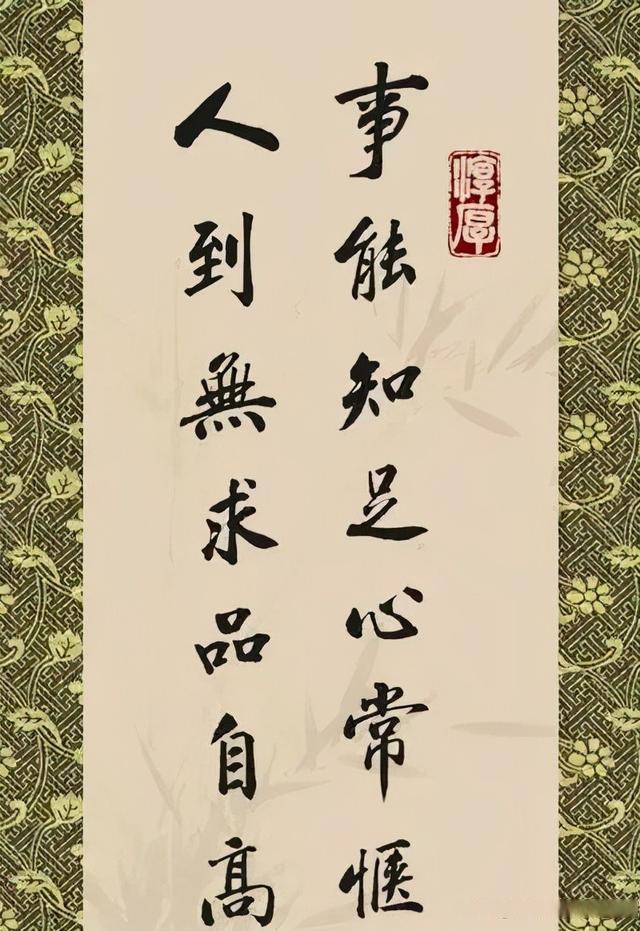 淳厚
事能知足心常愜
人到無求品自高